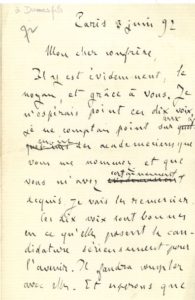 à Dumas fils
Paris 3 juin 92
Mon cher confrère,
Il y est évidemment, le
noyau, et grâce à vous. Je
n'espérais point ces dix voix
je ne comptais point sur
des académiciens que
vous me nommez et que
vous m'avez certainement
acquis. Je vais les remercier
les dix voix sont bonnes
en ce qu'elles posent la can-
didature sérieusement pour
l'avenir. Il faudra compter
avec elle. Et espérons que